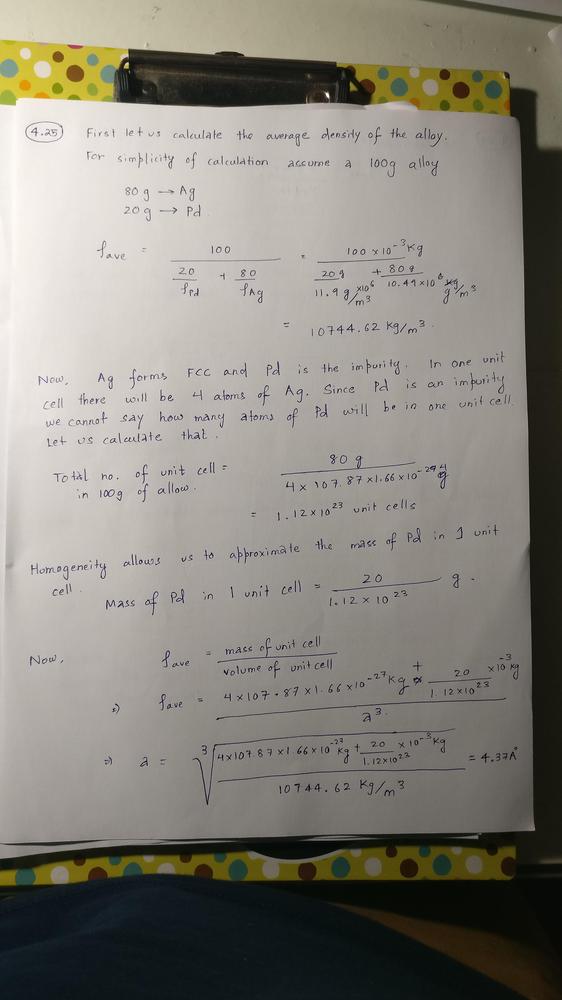 4.25 First let us calculate the average density of the alloy.
For simplicity of calculation assume a 100g alloy
80 g → Ag
20 g → Pd.
ρave = 100 / (20/ρPd + 80/ρAg) = 100 × 10⁻³ Kg / (20 g / 11.9 g/m³ ×10⁶ + 80 g / 10.49 × 10⁶ g/m³)
= 10744.62 Kg/m³.
Now, Ag forms FCC and Pd is the impurity. In one unit
cell there will be 4 atoms of Ag. Since Pd is an impurity
we cannot say how many atoms of Pd will be in one unit cell.
Let us calculate that.
Total no. of unit cell = 80 g / (4 × 107.87 × 1.66 × 10⁻²⁴ g)
in 100g of allow.
= 1.12 × 10²³ unit cells
Homogeneity allows us to approximate the mass of Pd in 1 unit
cell.
Mass of Pd in 1 unit cell = 20 / (1.12 × 10²³) g.
Now, ρave = mass of unit cell / volume of unit cell
⇒ ρave = (4 × 107.87 × 1.66 × 10⁻²⁷ Kg + 20 / (1.12×10²³) × 10⁻³ kg) / a³.
⇒ a = ∛((4×107.87 × 1.66 × 10⁻²⁷ Kg + 20 / (1.12×10²³) × 10⁻³ Kg) / 10744.62 Kg/m³) = 4.37A°